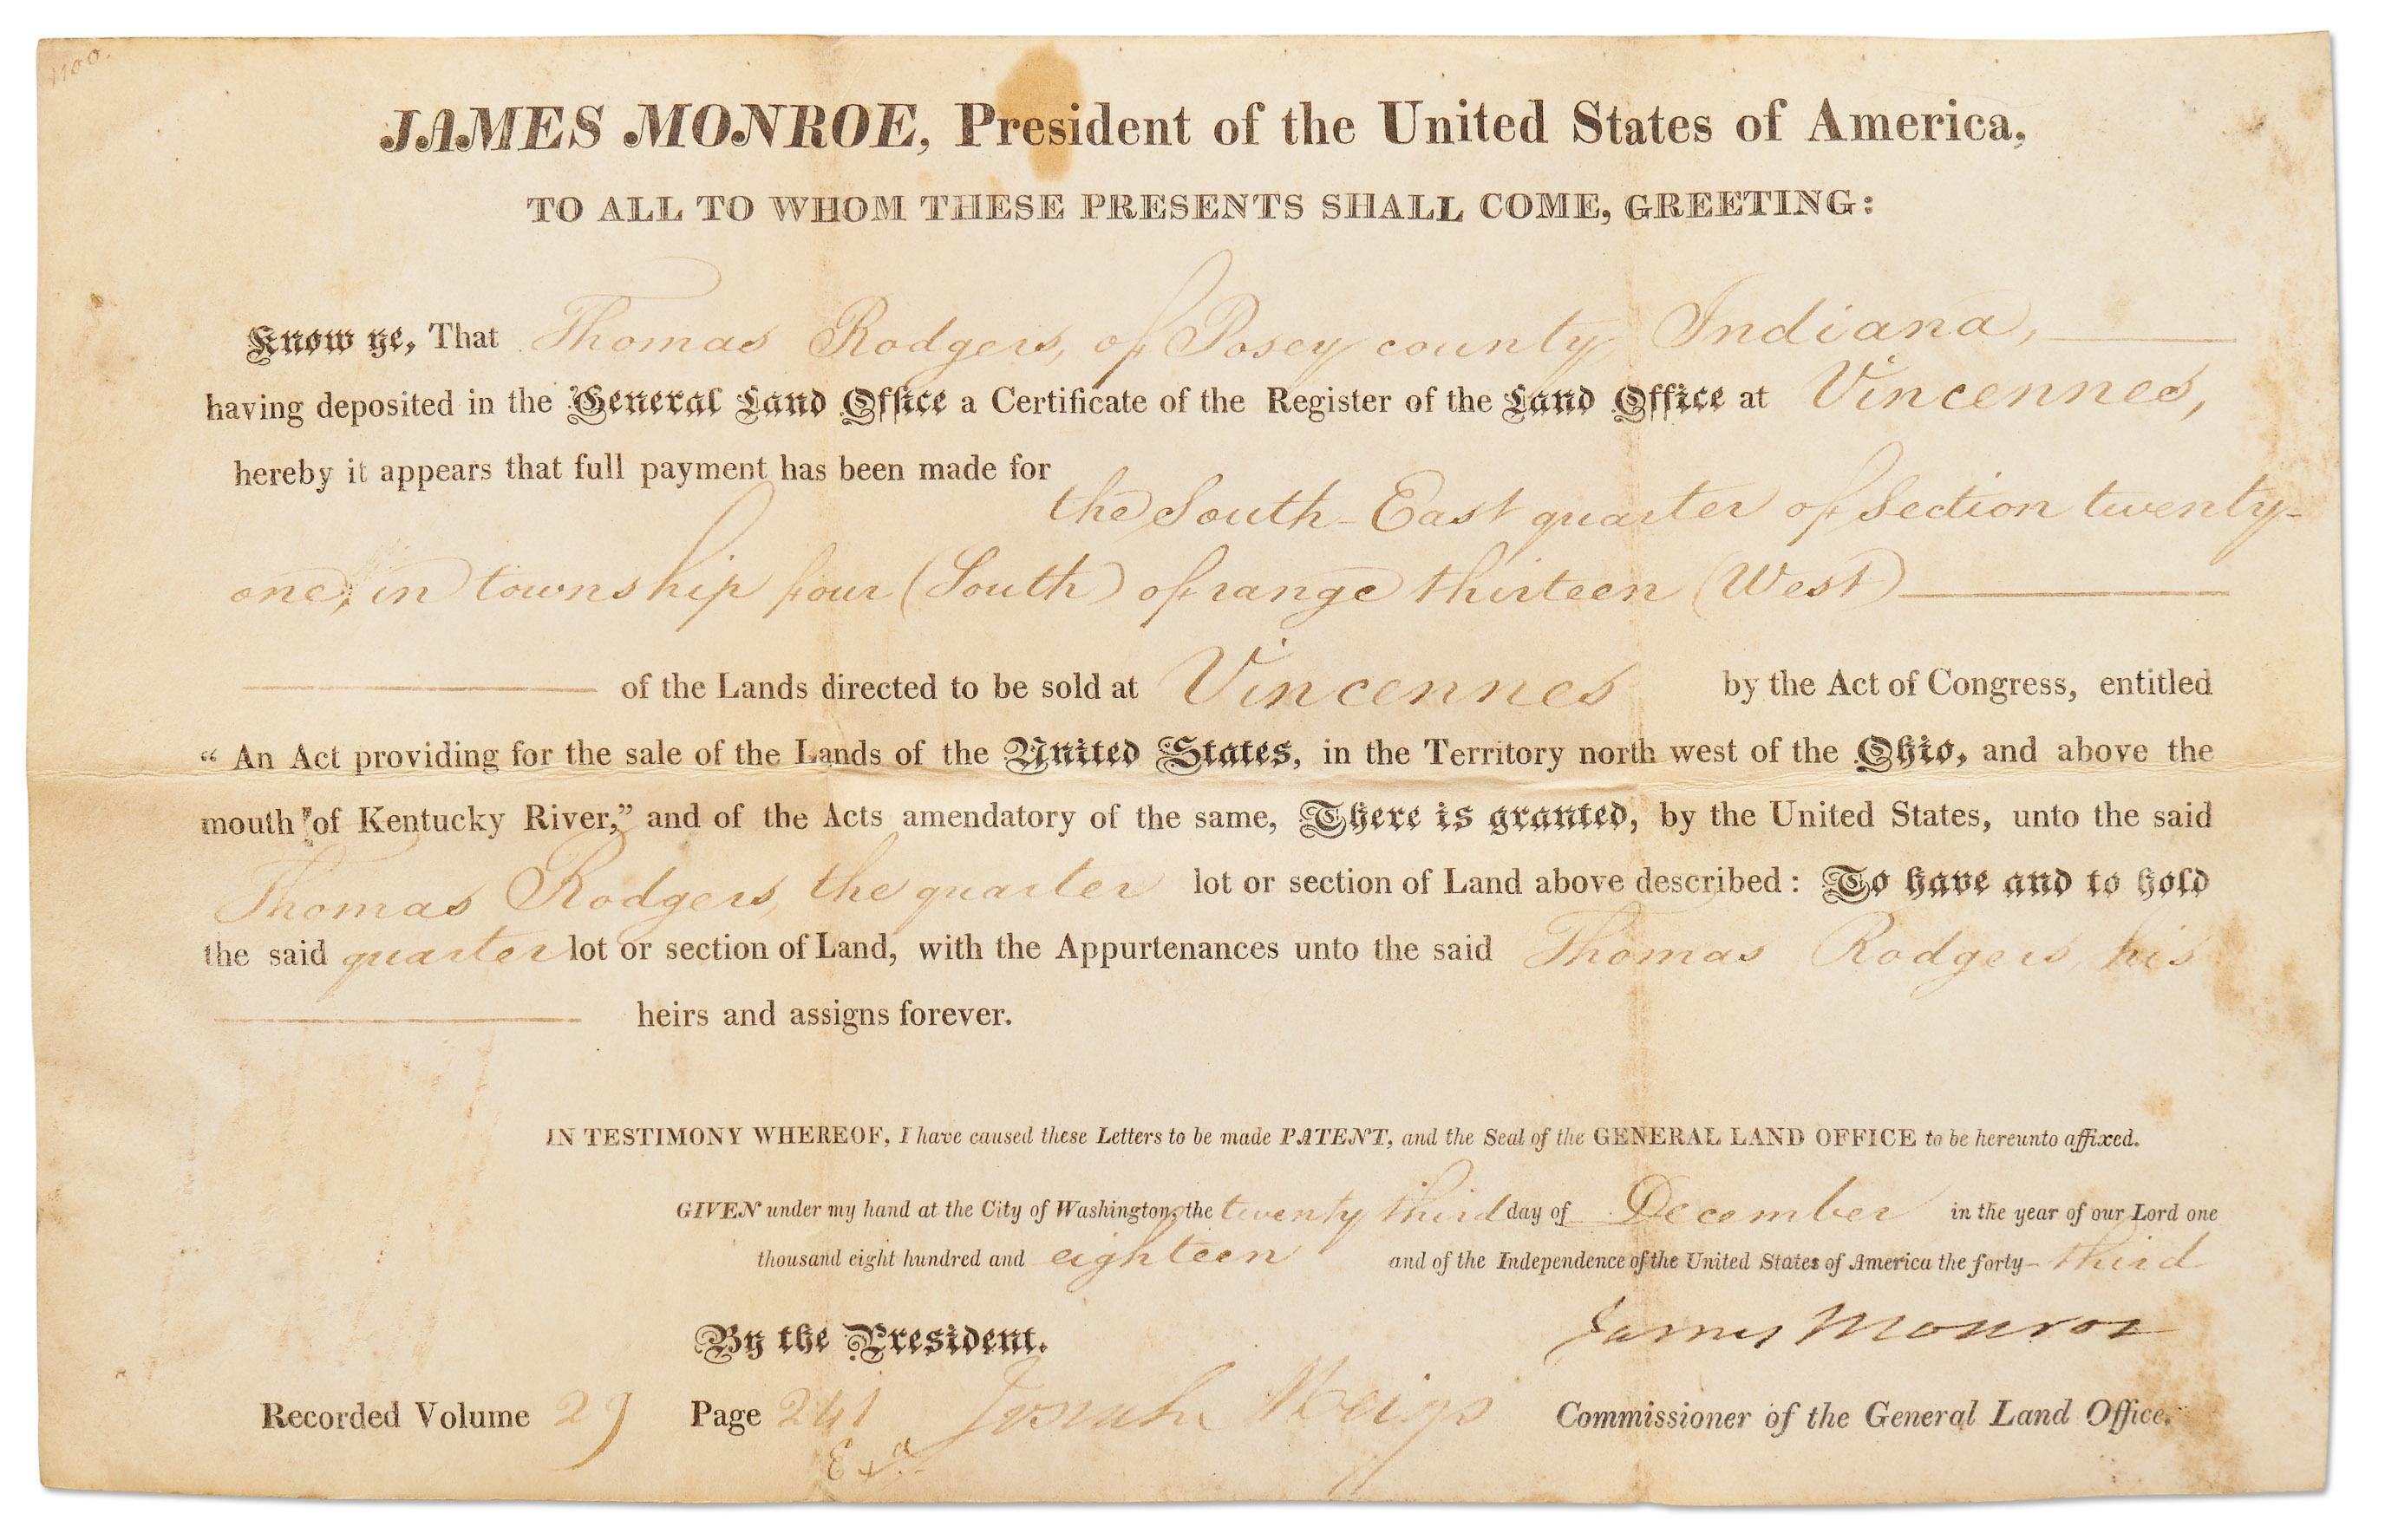 1100.
JAMES MONROE, President of the United States of America,
TO ALL TO WHOM THESE PRESENTS SHALL COME, GREETING:
Know ye, That Thomas Rodgers, of Posey county, Indiana,
having deposited in the General Land Office a Certificate of the Register of the Land Office at Vincennes,
hereby it appears that full payment has been made for
the South-East quarter of Section twenty-
one, in township four (South) of range thirteen (West)
of the Lands directed to be sold at Vincennes by the Act of Congress, entitled
“ An Act providing for the sale of the Lands of the United States, in the Territory north west of the Ohio, and above the
mouth of Kentucky River,” and of the Acts amendatory of the same, There is granted, by the United States, unto the said
Thomas Rodgers, the quarter lot or section of Land above described : To have and to hold
the said quarter lot or section of Land, with the Appurtenances unto the said Thomas Rodgers, his
heirs and assigns forever.
IN TESTIMONY WHEREOF, I have caused these Letters to be made PATENT, and the Seal of the GENERAL LAND OFFICE to be hereunto affixed.
GIVEN under my hand at the City of Washington, the twenty third day of December in the year of our Lord one
thousand eight hundred and eighteen and of the Independence of the United States of America the forty-third
James Monroe
By the President.
Recorded Volume 29 Page 241 Josiah Meigs Commissioner of the General Land Office.
Exd.